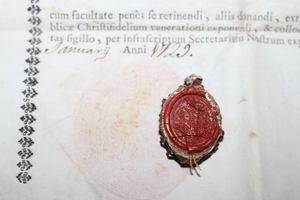 cum facultate penès se retinendi, aliis donandi, ext
blicæ Christifidelium venerationi exponendi, & colloc
tas sigillo, per infrascriptum Secretarium Nostrum exp
January Anni 1729.